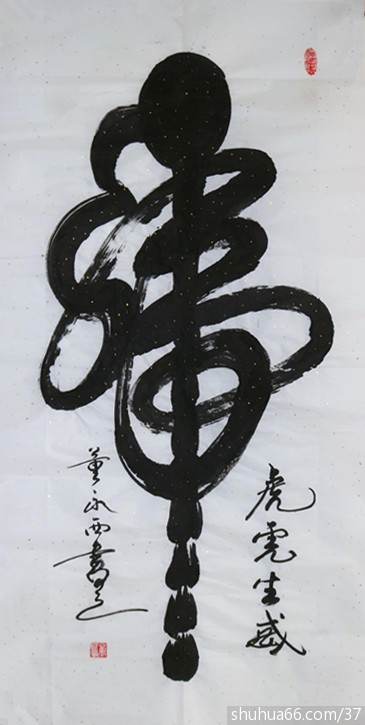 虎
虎虎生威
董永西書
shuhua66.com/37